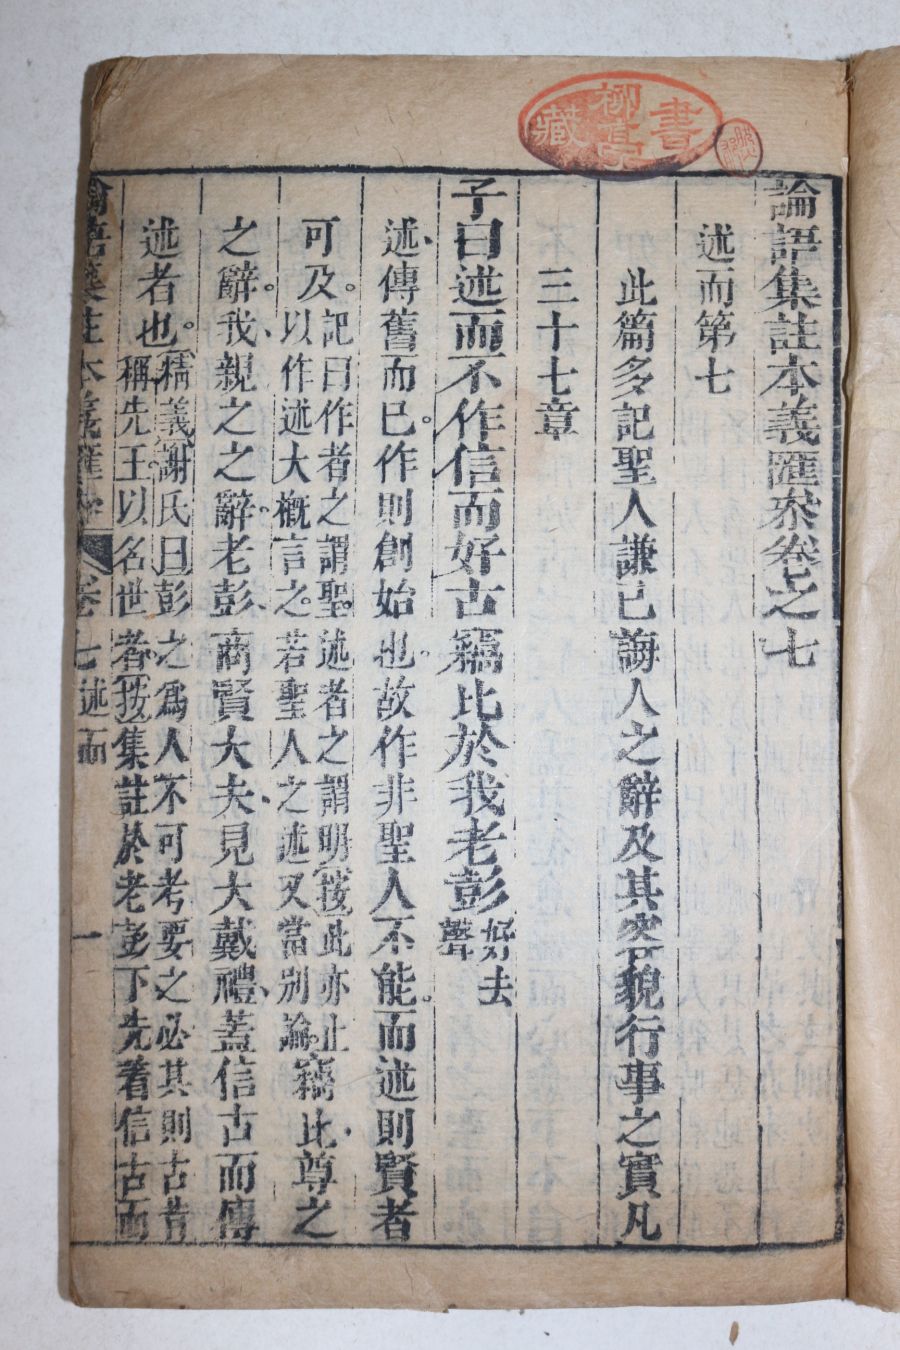 論語集註本義匯叅卷之七
述而第七
此篇多記聖人謙已誨人之辭及其容貌行事之實凡
三十七章
子曰述而不作信而好古竊比於我老彭
好去
聲
述傳舊而已作則創始也故作非聖人不能而述則賢者
可及
記曰作者之謂聖述者之謂明按此亦止
以作述大概言之若聖人之述又當別論
竊比尊之
之辭我親之之辭老彭商賢大夫見大戴禮蓋信古而傳
述者也
精義謝氏曰彭之爲人不可考要之必其則古昔
稱先王以名世者按集註於老彭下先著信古而
論語集註本義匯叅 卷七 述而 一
柳亭
書
藏